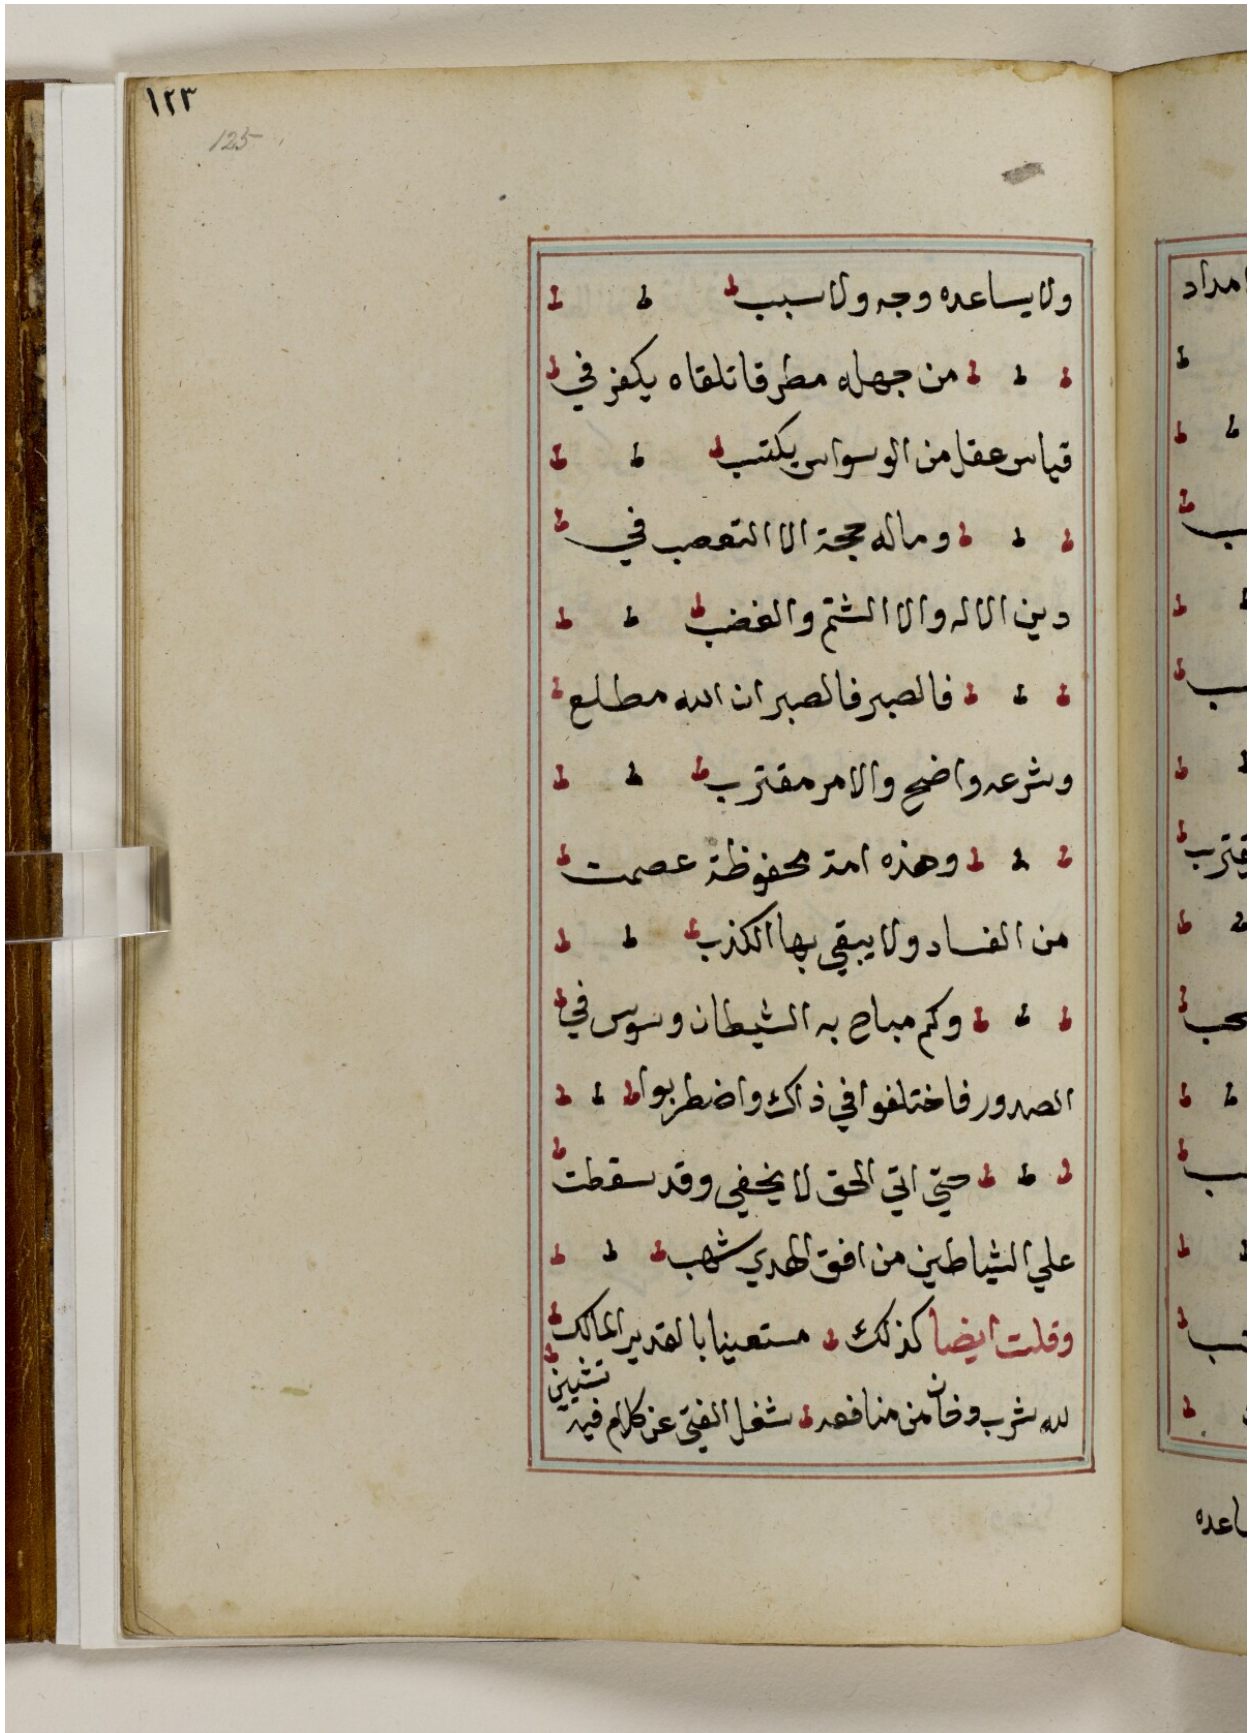 ١٢٣
125
ولا يساعده وجه ولا سبب
من جهله مطرقا تلقاه يكفر في
قياس عقل من الوسواس يكتب
وماله حجة الا التعصب في
دين الاله والا الشتم والغضب
فالصبر فالصبر ان الله مطلع
وشرعه واضح والامر مقترب
وهذه امة محفوظة عصمت
من الفساد ولا يبقي بها الكذب
وكم مباح به الشيطان وسوس في
الصدور فاختلفوا في ذاك واضطربوا
حتي اتي الحق لا يخفي وقد سقطت
علي الشياطين من افق الهدي شهب
وقلت ايضا كذلك مستعينا بالقدير المالك
لله شرب دخان من منافعه شغل الفتي عن كلام فيه تشيين
امداد
قترب
ساعده